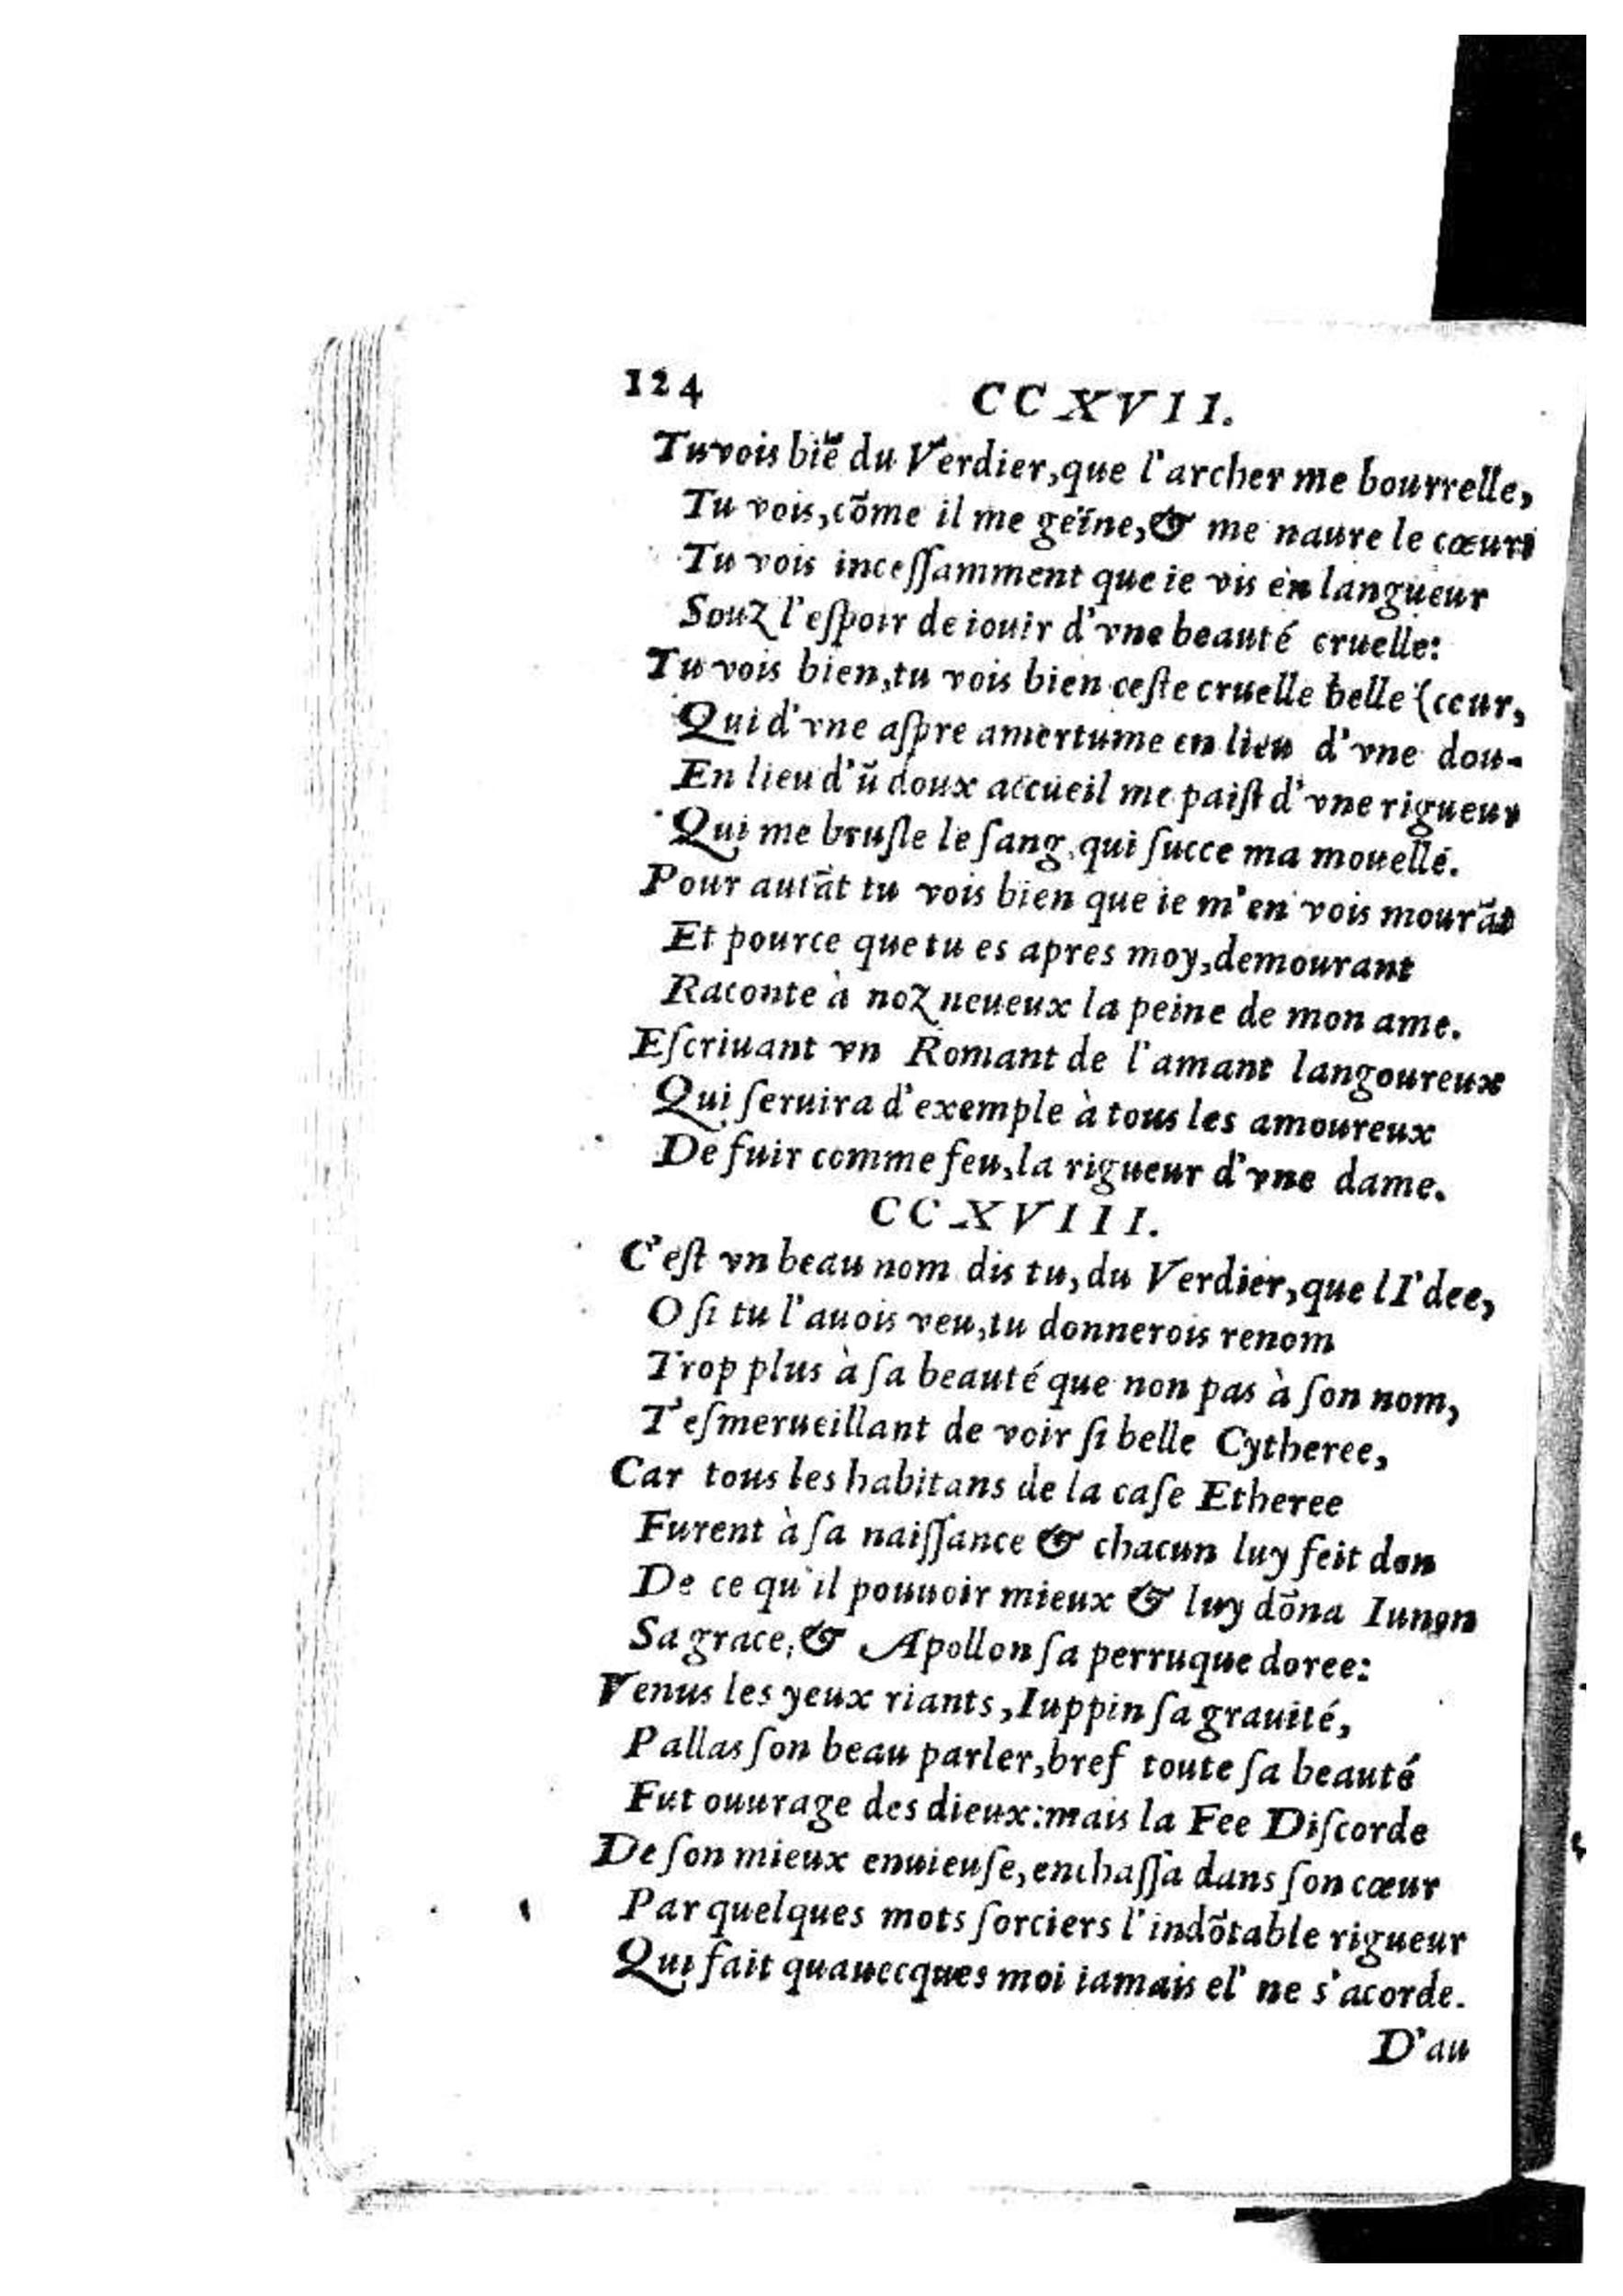 124
CCXVII.
Tu vois biẽ du Verdier, que l'archer me bourrelle,
Tu vois, cõme il me geïne, & me naure le cœur:
Tu vois inceſſamment que ie vis en langueur
Souz l'eſpoir de iouir d'vne beauté cruelle:
Tu vois bien, tu vois bien ceſte cruelle belle (ceur,
Qui d'vne aſpre amertume en lieu d'vne dou-
En lieu d'ũ doux accueil me paiſt d'vne rigueur
Qui me bruſle le ſang, qui ſucce ma mouelle.
Pour autãt tu vois bien que ie m'en vois mourãt
Et pource que tu es apres moy, demourant
Raconte à noz neueux la peine de mon ame.
Eſcriuant vn Romant de l'amant langoureux
Qui ſeruira d'exemple à tous les amoureux
De fuir comme feu, la rigueur d'vne dame.
CCXVIII.
C'eſt vn beau nom dis tu, du Verdier, que lI'dee,
O ſi tu l'auois veu, tu donnerois renom
Trop plus à ſa beauté que non pas à ſon nom,
T'eſmerueillant de voir ſi belle Cytheree,
Car tous les habitans de la caſe Etheree
Furent à ſa naiſſance & chacun luy feit don
De ce qu'il pouuoir mieux & luy dõna Iunon
Sa grace, & Apollon ſa perruque doree:
Venus les yeux riants, Iuppin ſa grauité,
Pallas ſon beau parler, bref toute ſa beauté
Fut ouurage des dieux: mais la Fee Diſcorde
De ſon mieux enuieuſe, enchaſſa dans ſon cœur
Par quelques mots ſorciers l'indõtable rigueur
Qui fait quauecques moi iamais el' ne s'acorde.
D'au